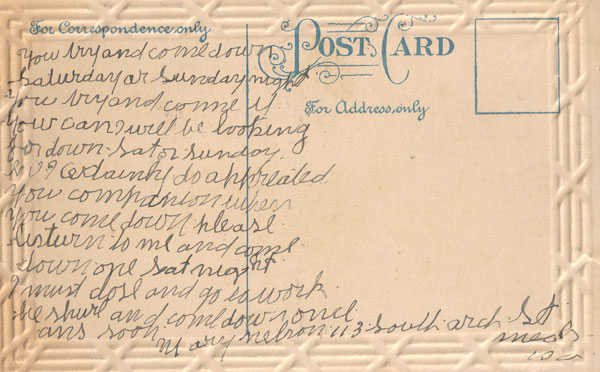 For Correspondence, only
POST CARD
For Address, only
you try and come down
Saturday or Sunday night
you try and come if
you can I will be looking
for down Sat or Sunday
I certainly do apprealed
you companion when
you come down please
listurn to me and come
down one Sat night
I must close and go to work
be shure and come down and
ans soon
Mary Nelson 113 South arch St